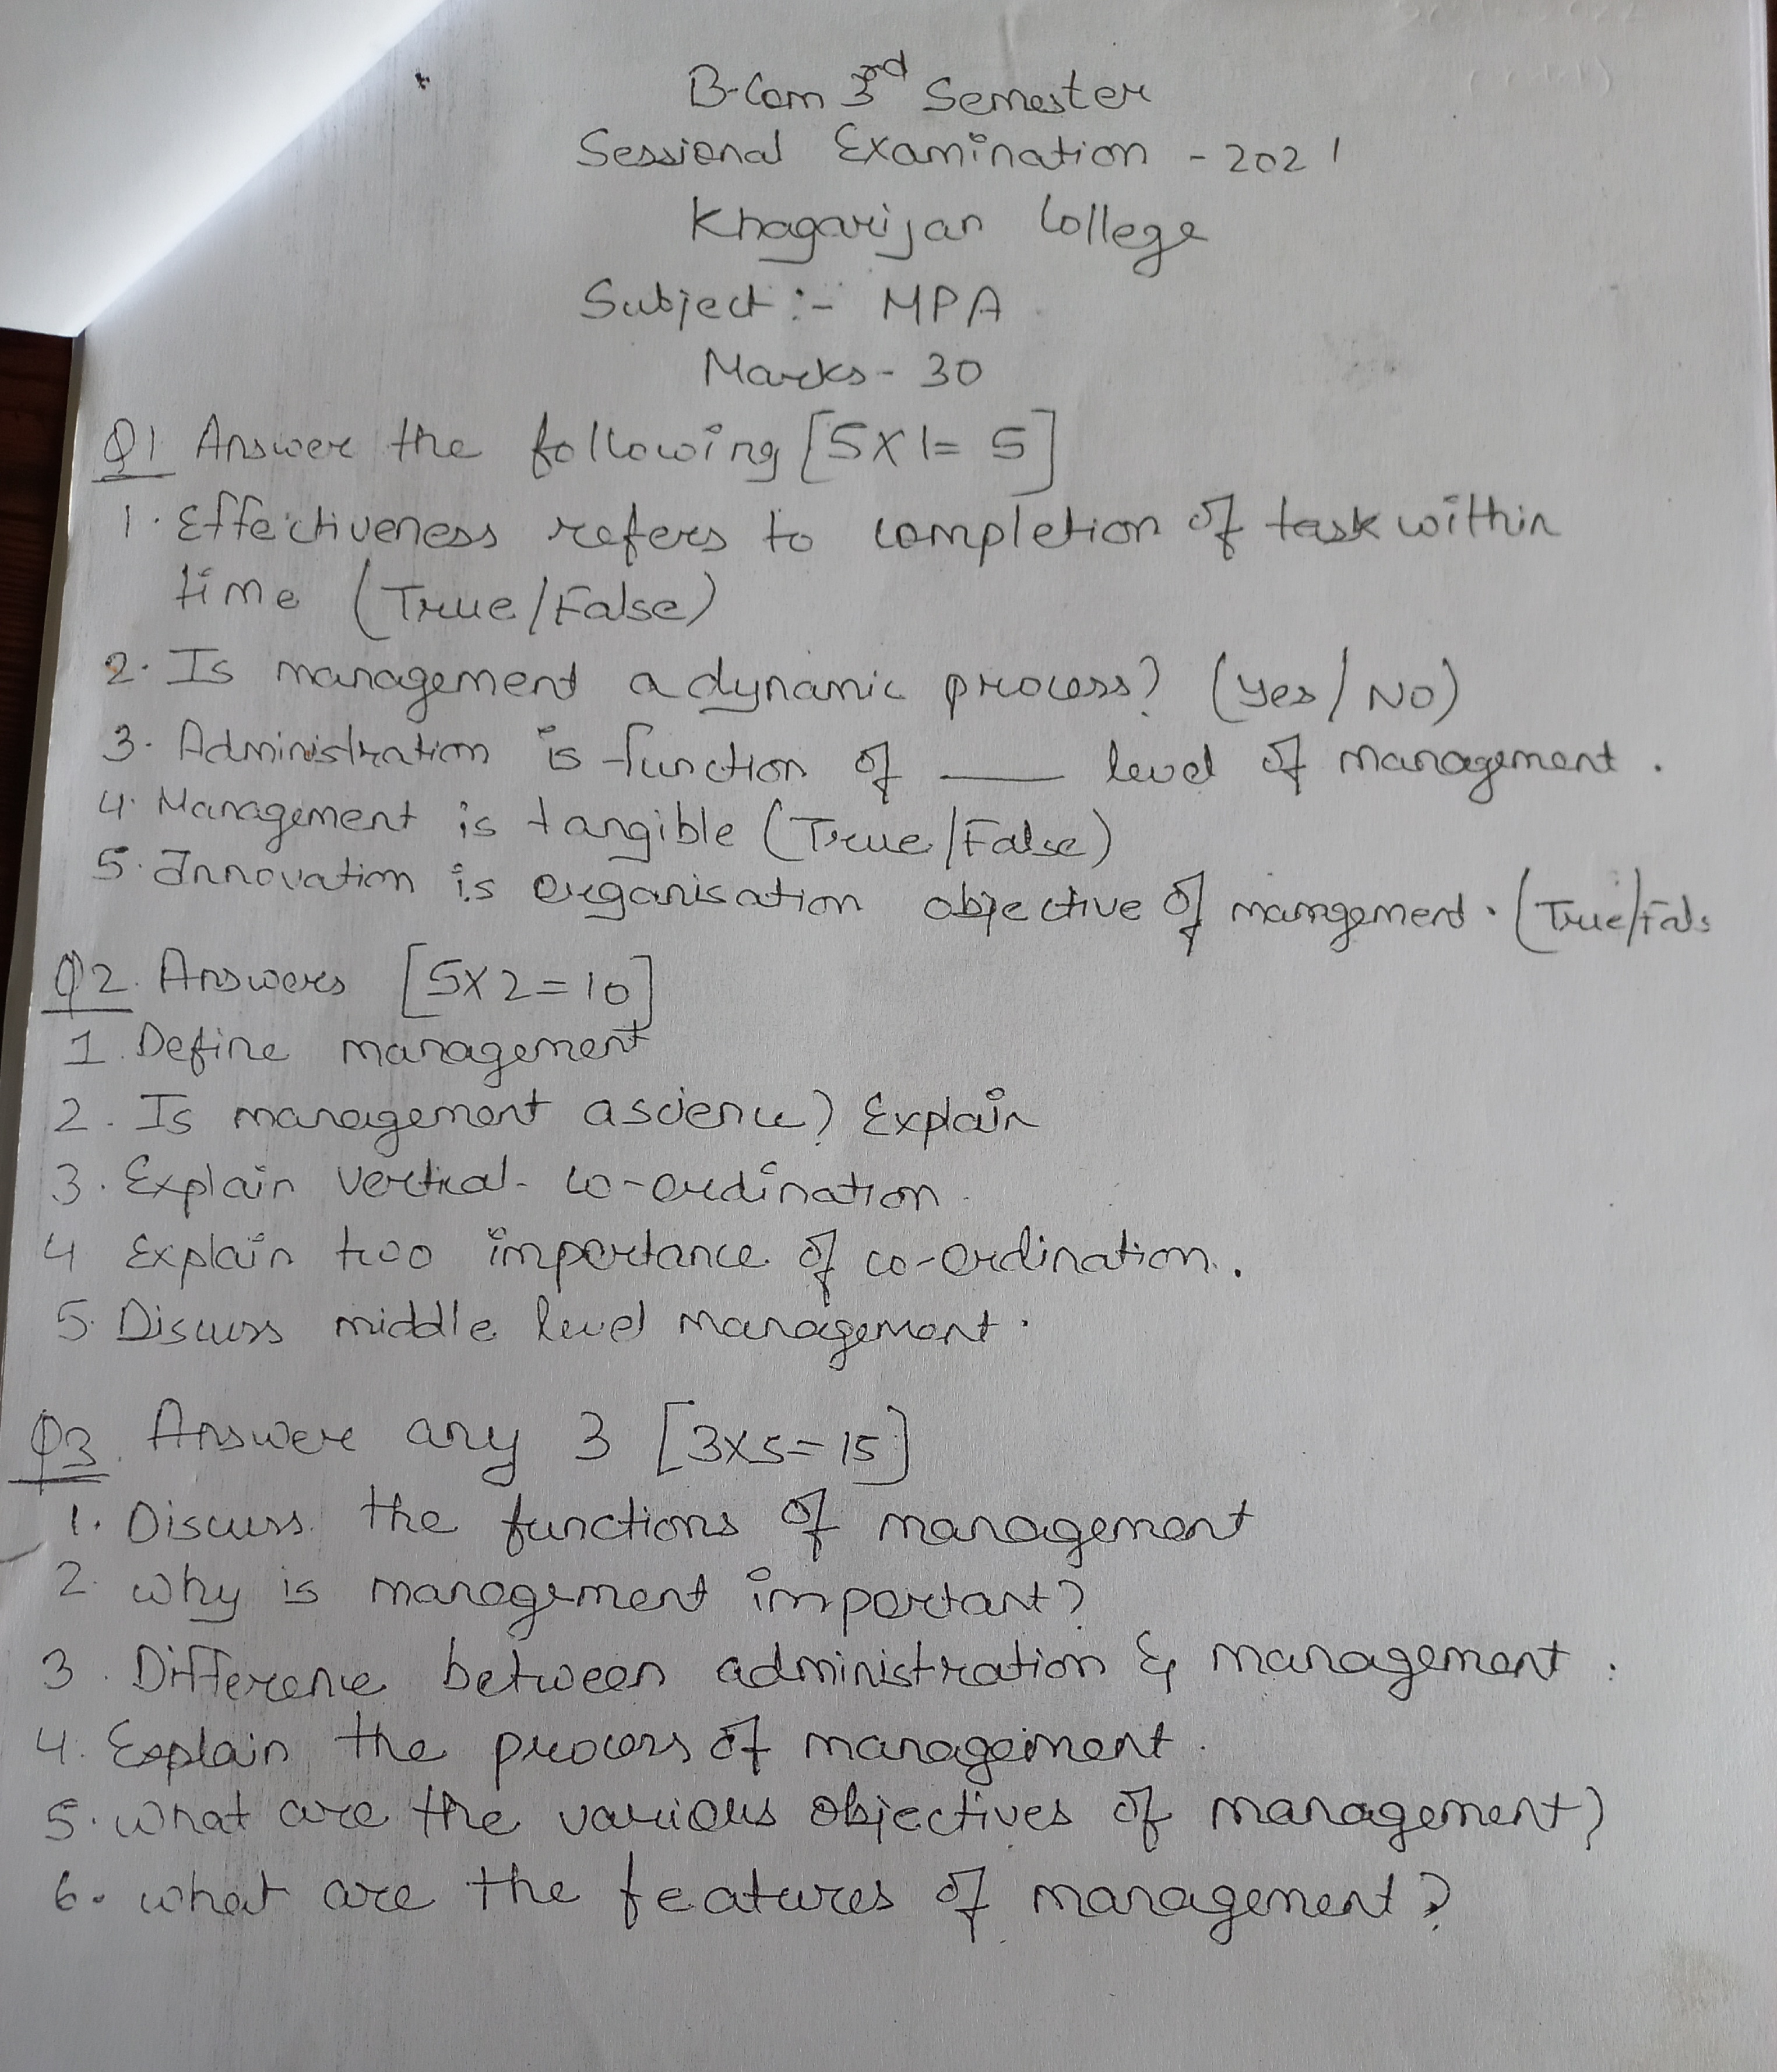 B.Com 3rd Semester
Sessional Examination - 2021
Khagarijan College
Subject :- MPA
Marks - 30
Q1 Answer the following [5X1= 5]
1. Effectiveness refers to completion of task within
time (True/False)
2. Is management a dynamic process? (Yes/NO)
3. Administration is function of ___ level of management.
4. Management is tangible (True/False)
5. Innovation is organisation objective of mangement. (True/Fals
Q2. Answers [5X2=10]
1. Define management
2. Is management a science? Explain
3. Explain vertical co-ordination.
4 Explain two importance of co-ordination.
5. Discuss middle level management.
Q3. Answer any 3 [3X5=15]
1. Discuss the functions of management
2. Why is management important?
3. Difference between administration & management.
4. Explain the process of management.
5. What are the various objectives of management?
6. What are the features of management?